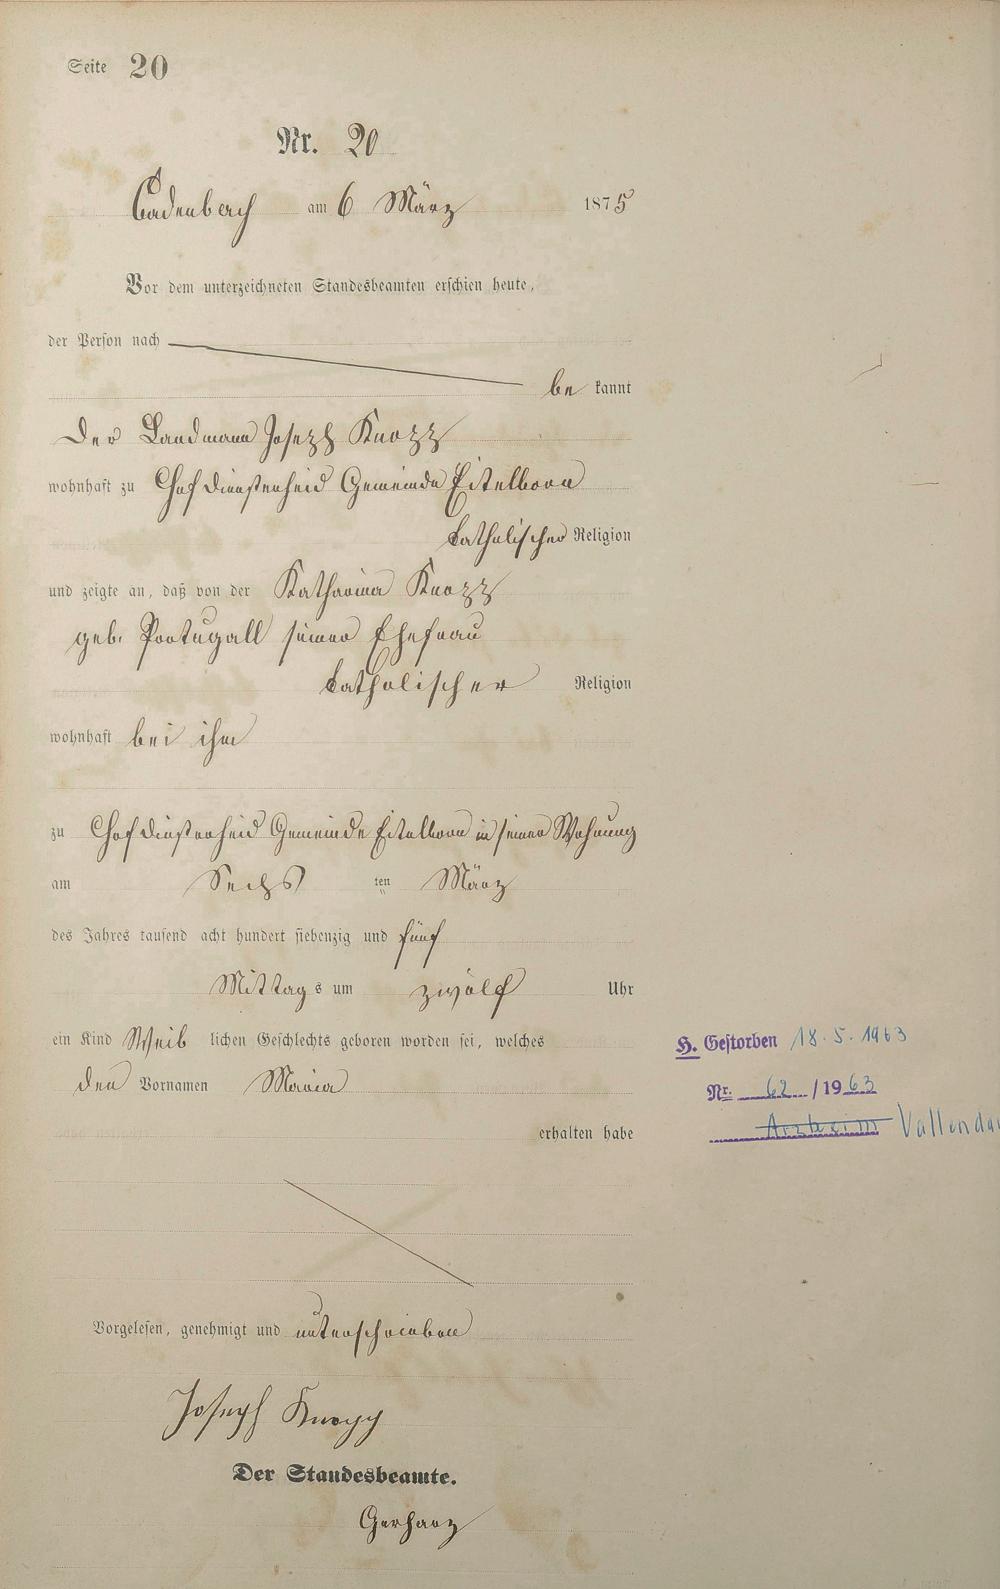 Seite 20
Nr. 20
Cadenbach am 6 März 1875
Vor dem unterzeichneten Standesbeamten erschien heute,
der Person nach
be kannt
Der Landmann Joseph Knopp
wohnhaft zu Hof Dienstenheid Gemeinde Eitelborn
katholischer Religion
und zeigte an, daß von der Katharina Knopp
geb. Portugall seiner Ehefrau
katholischer Religion
wohnhaft bei ihm
zu Hof Dinstenheid Gemeinde Eitelborn in seiner Wohnung
am Sechs ten März
des Jahres tausend acht hundert siebenzig und fünf
Mittag s um zwölf Uhr
ein Kind Weib lichen Geschlechts geboren worden sei, welches
den Vornamen Maria
erhalten habe
H. Gestorben 18.5.1963
Nr. 62 / 1963
Arzheim Vallendar
Vorgelesen, genehmigt und unterschrieben
Joseph Knopp
Der Standesbeamte.
Gerharz